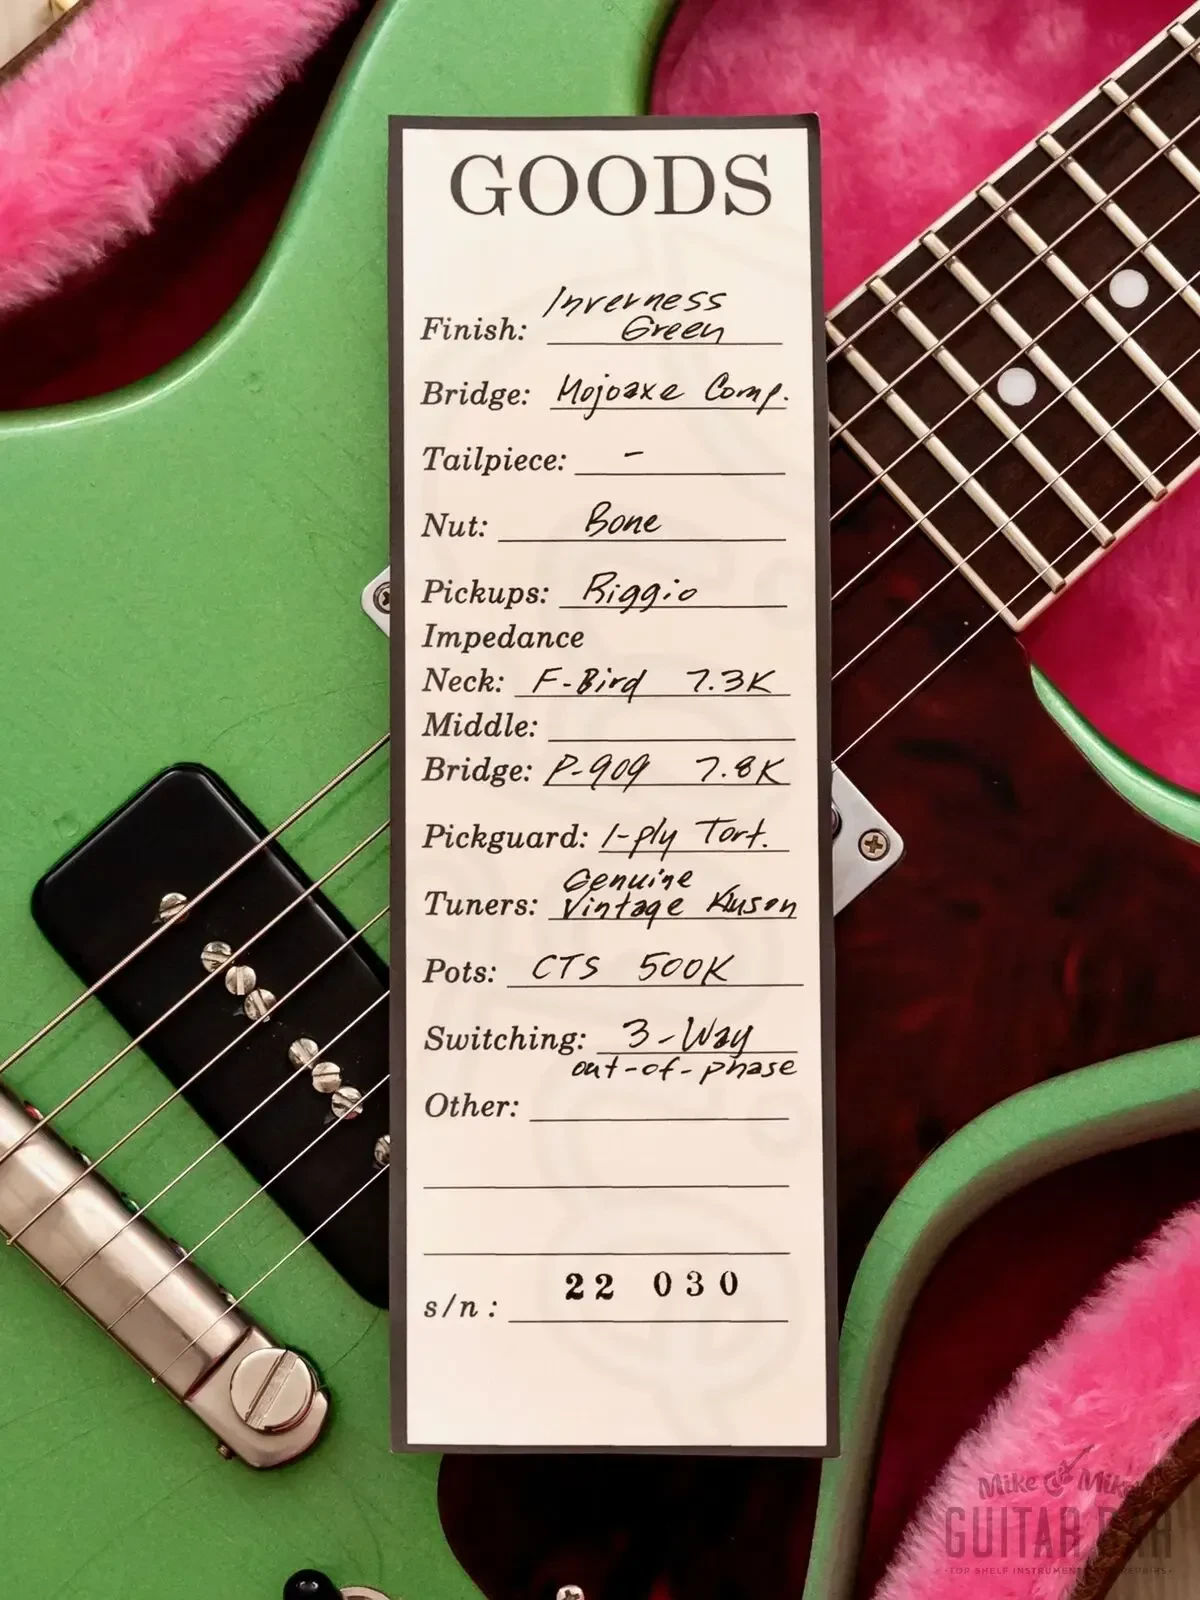 GOODS
Inverness
Finish: Green
Bridge: Mojoaxe Comp.
Tailpiece: -
Nut: Bone
Pickups: Riggio
Impedance
Neck: F-Bird 7.3K
Middle:
Bridge: P-909 7.8K
Pickguard: 1-ply Tort.
Genuine
Tuners: Vintage Kluson
Pots: CTS 500K
Switching: 3-Way
out-of-phase
Other:
s/n: 22 030
Mike & Mike's
GUITAR BAR
TOP SHELF INSTRUMENTS REPAIRS